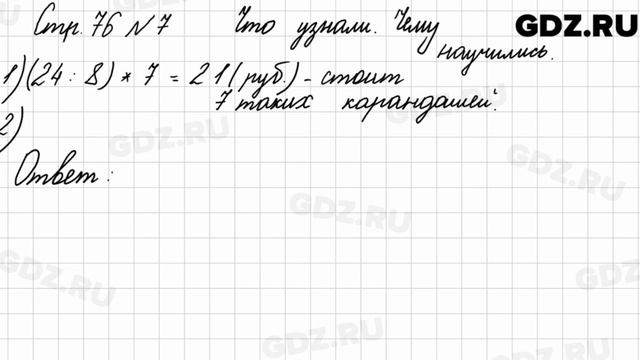 Стр. 76 N 7 Что узнали. Чему научились.
GDZ.RU
1) (24 : 8) * 7 = 21 (руб.) - стоит
7 таких карандашей.
2)
Ответ:
GDZ.RU
GDZ.RU
GDZ.RU
GDZ.RU
GDZ.RU
GDZ.RU
GDZ.RU